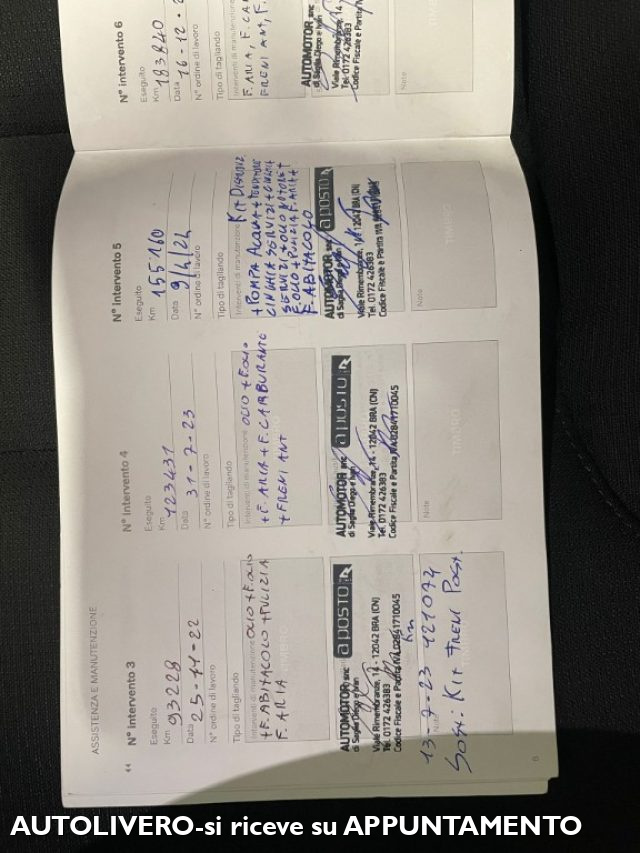 ASSISTENZA E MANUTENZIONE
N° intervento 3
Eseguito
Km 93228
Data 25-11-22
N° ordine di lavoro
Tipo di tagliando
Interventi di manutenzione OLIO + F.OLIO
+ F. ABITACOLO + PULIZIA
F. ARIA
AUTOMOTOR snc a posto
di Saglia Diego e Ivan
Viale Rimembranze, 14 - 12042 BRA (CN)
Tel. 0172 426383
Codice Fiscale e Partita IVA 02841710045
13-7-23 121074 Km
Note
Sost: KIT FRENI POST.
6
N° intervento 4
Eseguito
Km 123431
Data 31-7-23
N° ordine di lavoro
Tipo di tagliando
Interventi di manutenzione OLIO + F.OLIO
+ F. ARIA + F. CARBURANTE
+ FRENI ANT
AUTOMOTOR snc a posto
di Saglia Diego e Ivan
Viale Rimembranze, 14 - 12042 BRA (CN)
Tel. 0172 426383
Codice Fiscale e Partita IVA 02841710045
TIMBRO
Note
N° intervento 5
Eseguito
Km 155160
Data 9/4/24
N° ordine di lavoro
Tipo di tagliando
Interventi di manutenzione KIT DISTRIBUZ
+ POMPA ACQUA + TENDITORE
CINGHIA SERVIZI + CINGHIA
SERVIZI + OLIO MOTORE +
F. OLIO + PULIZIA F. ARIA +
F. ABITACOLO
AUTOMOTOR snc a posto
di Saglia Diego e Ivan
Viale Rimembranze, 14 - 12042 BRA (CN)
Tel. 0172 426383
Codice Fiscale e Partita IVA
TIMBRO
Note
N° intervento 6
Eseguito
Km 183840
Data 16-12-2
N° ordine di lavoro
Tipo di tagliando
Interventi di manutenzione
F. ARIA, F. CA
FRENI ANT, F.
AUTOMOTOR snc
di Saglia Diego e Ivan
Viale Rimembranze, 14
Tel. 0172 426383
Codice Fiscale e Partita
TIMBRO
Note
AUTOLIVERO-si riceve su APPUNTAMENTO